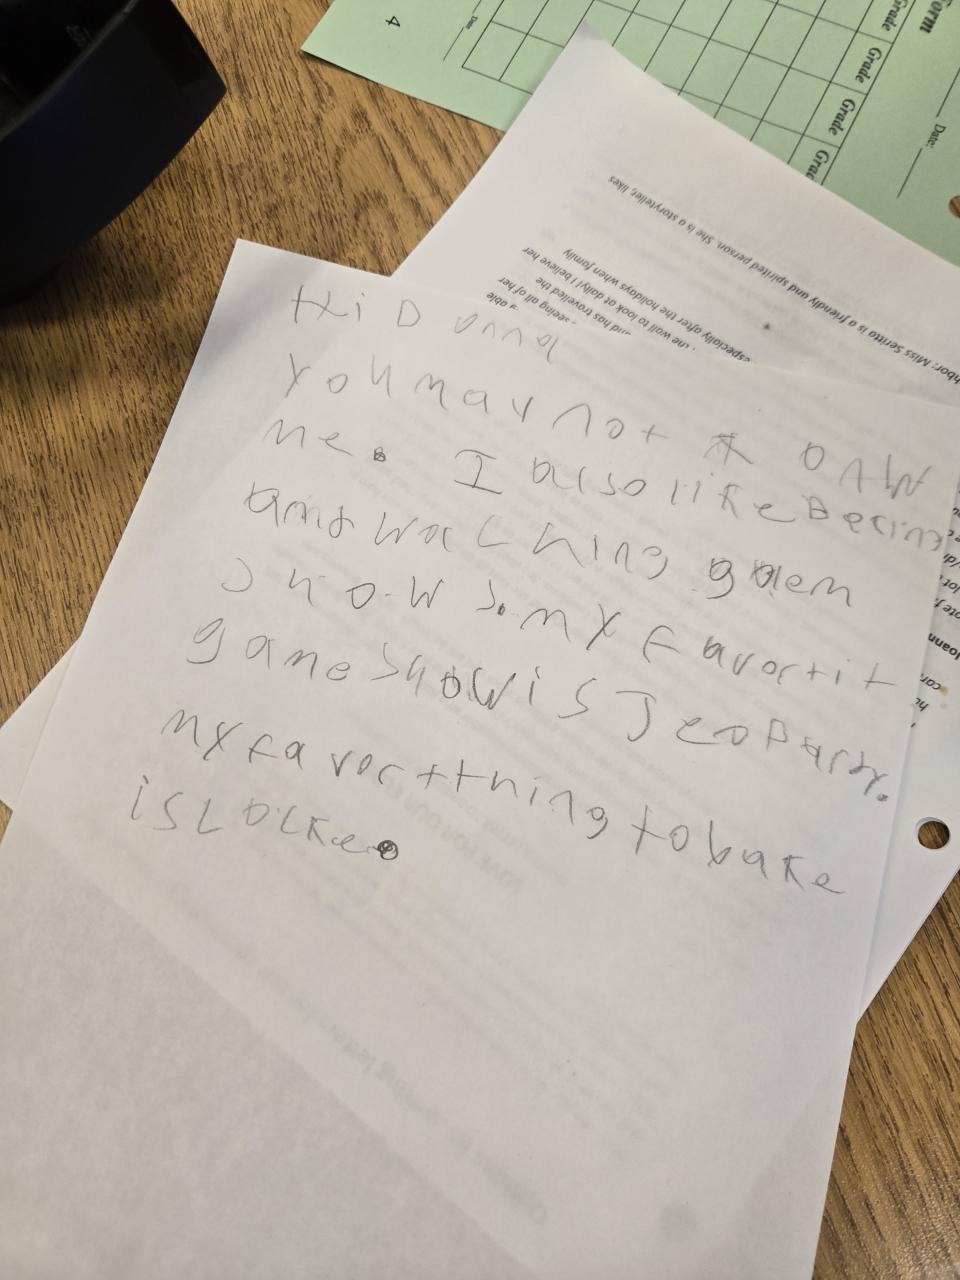 4
Date
Form
Grade
Grade
Grade
Date:
hbor: Miss Seritta is a friendly and spirited person. She is a storyteller, likes
especially after the holidays when family
the wall to look at daily! I believe her
and has travelled the
seeing all of her
able
Hi Dana
You may not know
me. I also like Becing
and waching gaem
show s. my favortit
game show is Jeopardy.
my favorit thing to bake
is cocke.